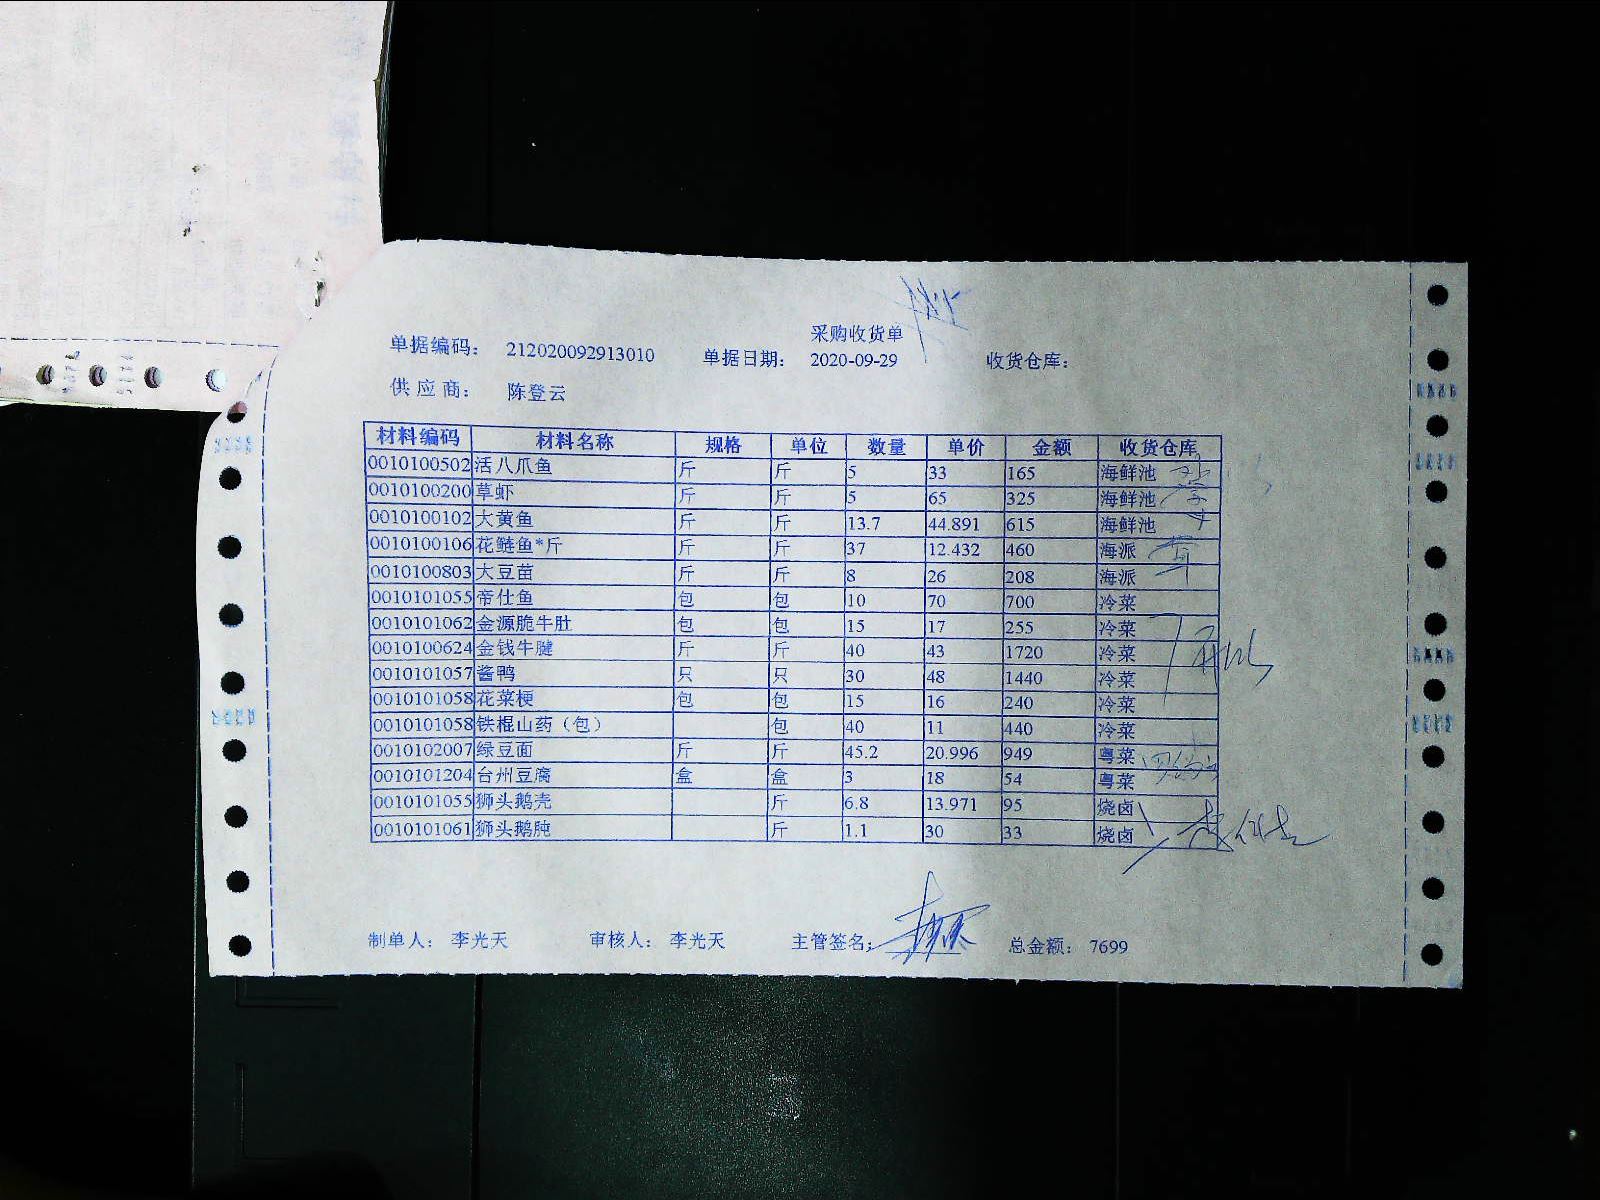 采购收货单
单据编码： 212020092913010 单据日期： 2020-09-29 收货仓库：
供应商： 陈登云
材料编码 材料名称 规格 单位 数量 单价 金额 收货仓库
0010100502 活八爪鱼 斤 斤 5 33 165 海鲜池
0010100200 草虾 斤 斤 5 65 325 海鲜池
0010100102 大黄鱼 斤 斤 13.7 44.891 615 海鲜池
0010100106 花鲢鱼*斤 斤 斤 37 12.432 460 海派
0010100803 大豆苗 斤 斤 8 26 208 海派
0010101055 帝仕鱼 包 包 10 70 700 冷菜
0010101062 金源脆牛肚 包 包 15 17 255 冷菜
0010100624 金钱牛腱 斤 斤 40 43 1720 冷菜
0010101057 酱鸭 只 只 30 48 1440 冷菜
0010101058 花菜梗 包 包 15 16 240 冷菜
0010101058 铁棍山药（包） 包 40 11 440 冷菜
0010102007 绿豆面 斤 斤 45.2 20.996 949 粤菜
0010101204 台州豆腐 盒 盒 3 18 54 粤菜
0010101055 狮头鹅壳 斤 6.8 13.971 95 烧卤
0010101061 狮头鹅肫 斤 1.1 30 33 烧卤
制单人： 李光天 审核人： 李光天 主管签名： 总金额： 7699